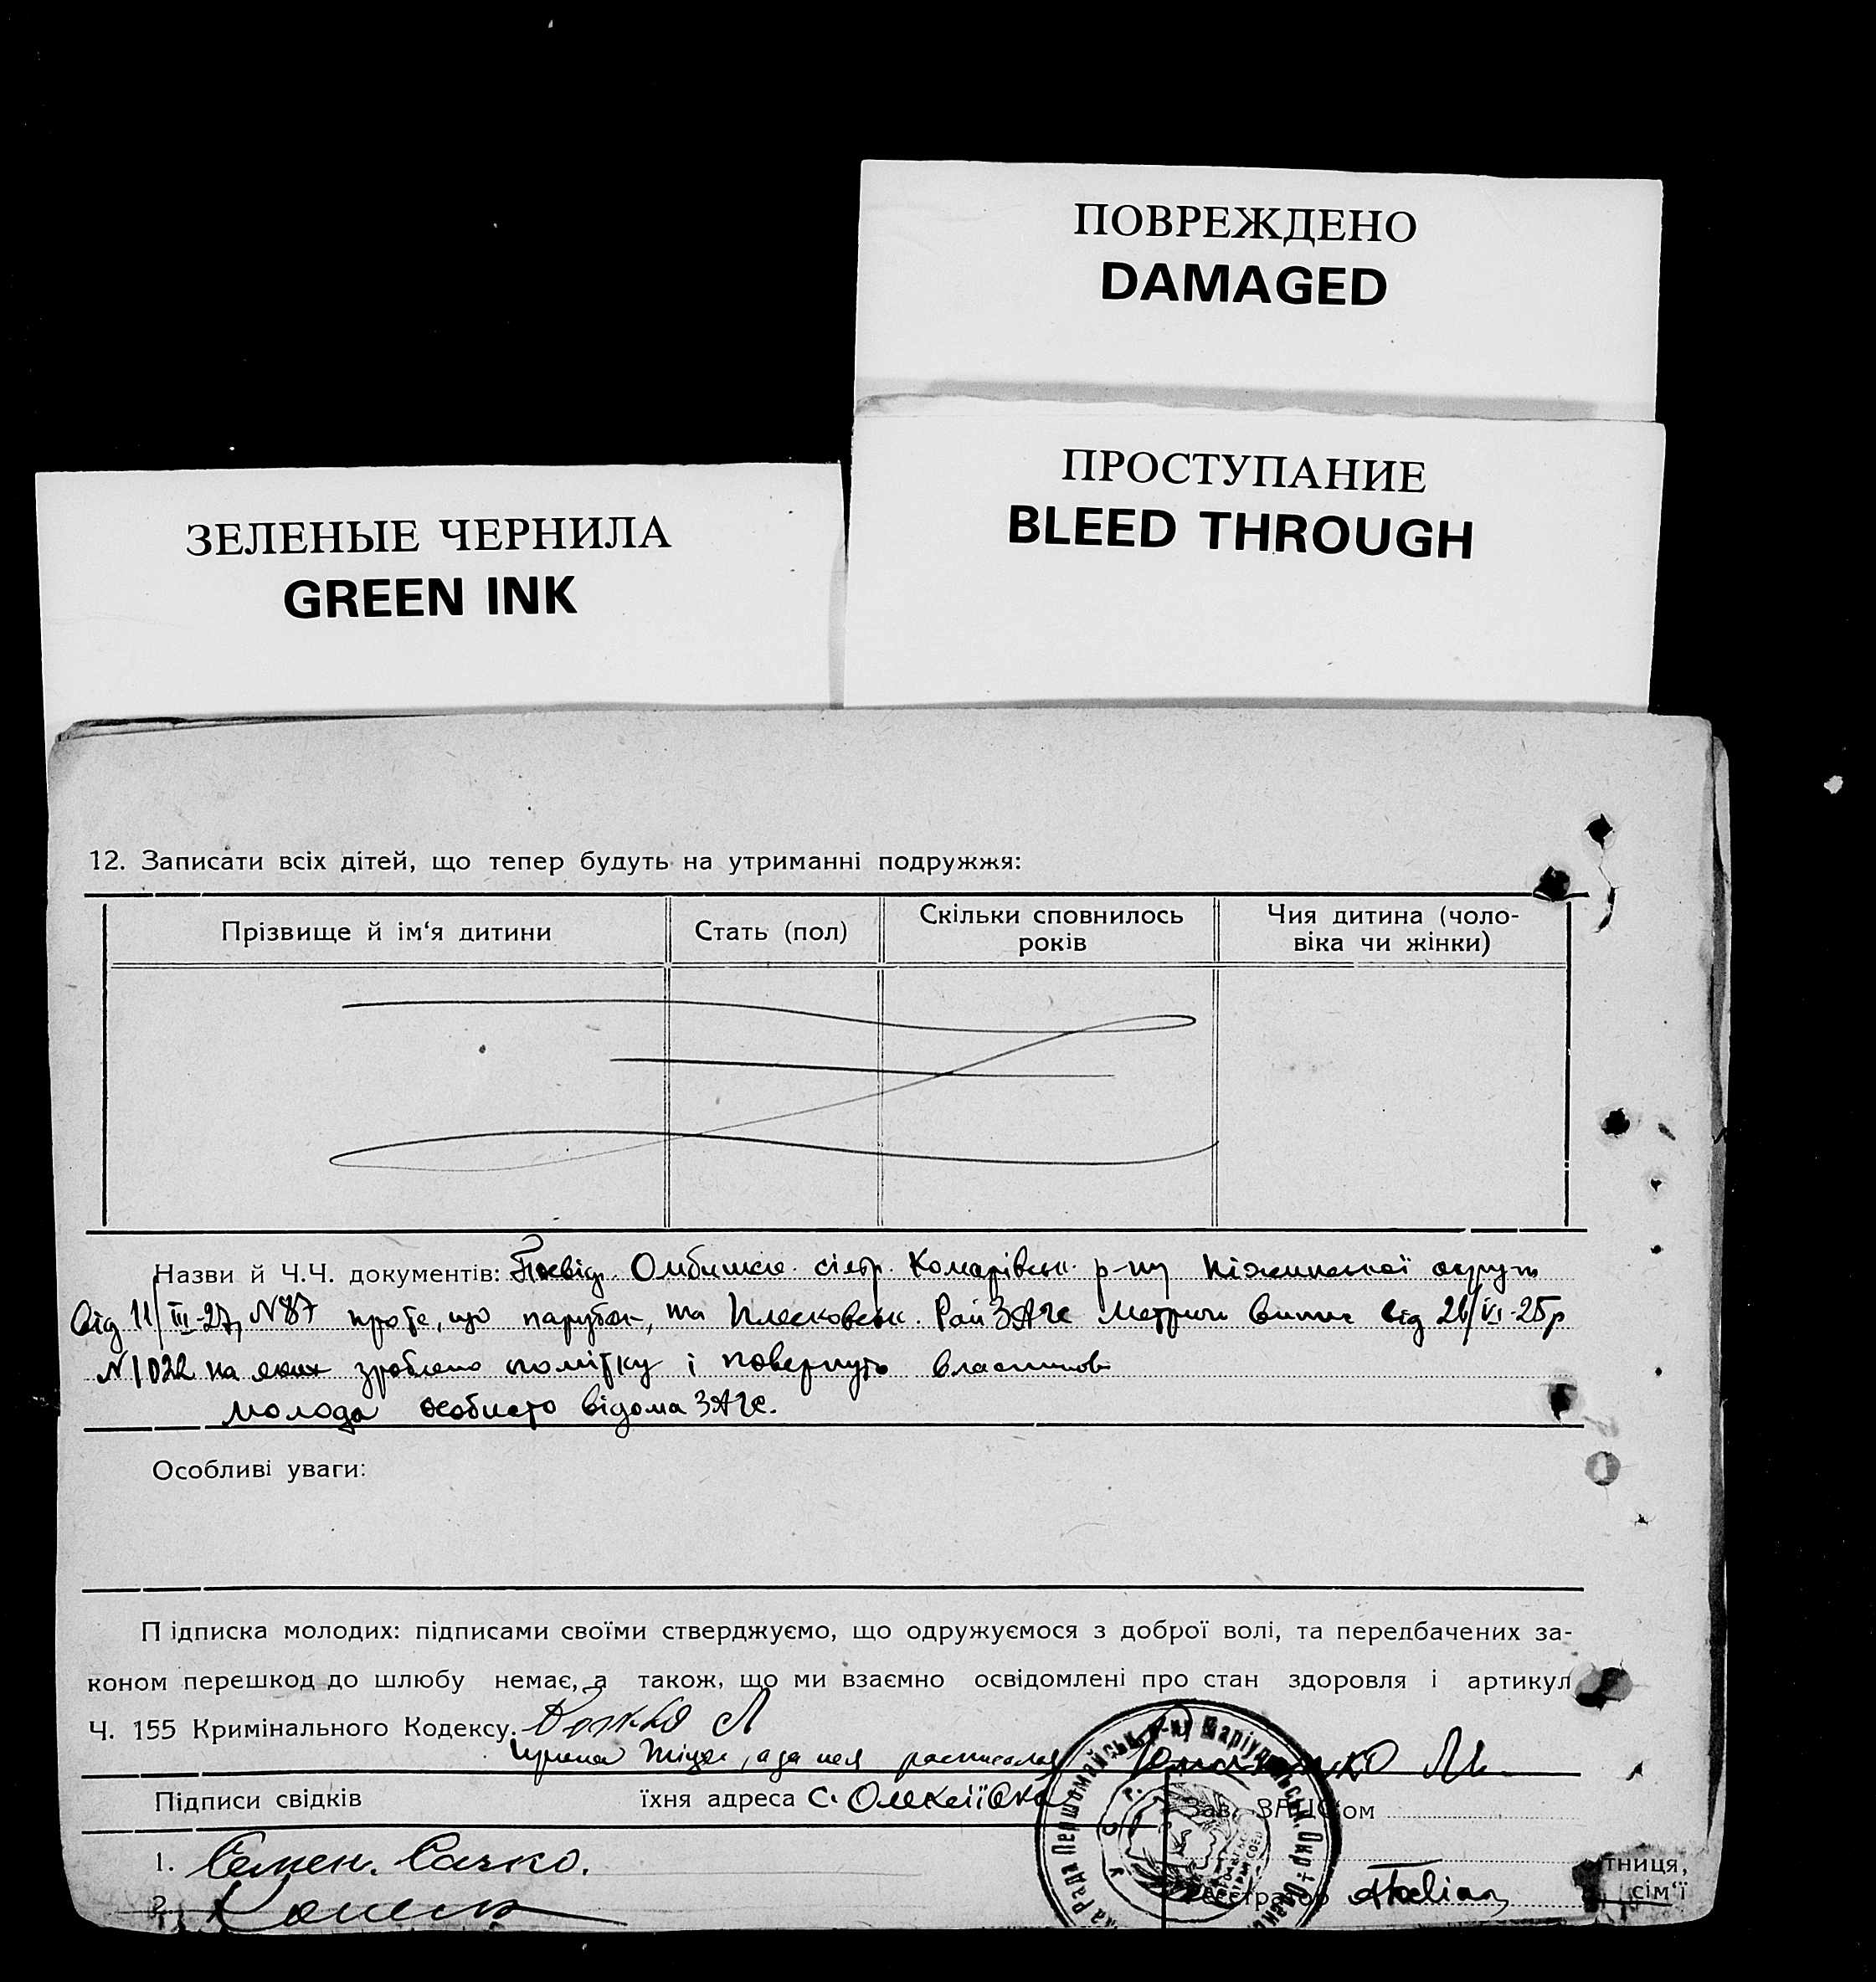 ПОВРЕЖДЕНО
DAMAGED
ПРОСТУПАНИЕ
BLEED THROUGH
ЗЕЛЕНЫЕ ЧЕРНИЛА
GREEN INK
12. Записати всіх дітей, що тепер будуть на утриманні подружжя:
Прізвище й ім‘я дитини
Стать (пол)
Скільки сповнилось
років
Чия дитина (чоло-
віка чи жінки)
Назви й Ч.Ч. документів: Посвід. Омбишсь. сільр. Комарівськ. р-ну Ніжинської округи
від 11/III-27, N87 про те, що парубок, та Плесковськ. Рай ЗАГС Метричн витяг від 26/VI-25р
N1022 на яких зроблено помітку і повернуто власникові
молода особисто відома ЗАГС.
Особливі уваги:
Підписка молодих: підписами своїми стверджуємо, що одружуємося з доброї волі, та передбачених за-
коном перешкод до шлюбу немає, а також, що ми взаємно освідомлені про стан здоровля і артикул
Ч. 155 Кримінального Кодексу.
а за нея росписался
Підписи свідків їхня адреса с. Олексіївка
Зав. ЗАГС‘ом
1. Семен. Сачко.
2.
Реєстратор
тниця,
сім‘ї
Рада Першомайськ. р-ну Маріупольськ. Окр.